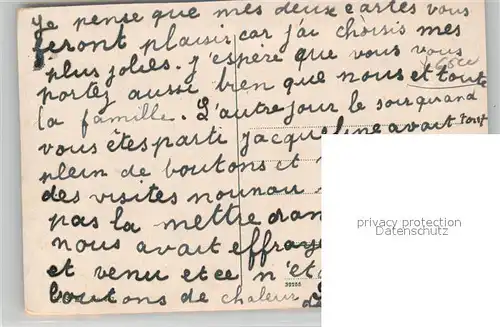 je pense que mes deux cartes vous
feront plaisir car j'ai choisis mes
plus jolies. j'espère que vous vous
portez aussi bien que nous et toute
la famille. L'autre jour le soir quand
vous êtes parti jacqueline avait tout
plein de boutons et
des visites
pas la mettre dan
nous avait effraye
et venu et ce n'et
boutons de chaleur
privacy protection
Datenschutz